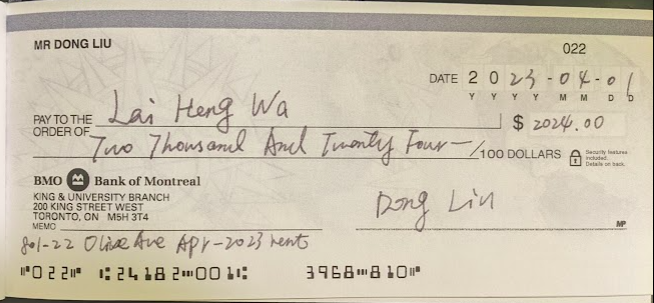 MR DONG LIU
022
DATE 2023-04-01
Y Y Y Y M M D D
PAY TO THE ORDER OF Lai Heng Wa $ 2024.00
Two Thousand And Twenty Four— /100 DOLLARS
Security features included. Details on back.
BMO Bank of Montreal
KING & UNIVERSITY BRANCH
200 KING STREET WEST
TORONTO, ON M5H 3T4
Dong Liu
MP
MEMO
801-22 Olive Ave Apr-2023 rent
⑈022⑈ ⑆24182⑉001⑆ 3968⑉810⑈